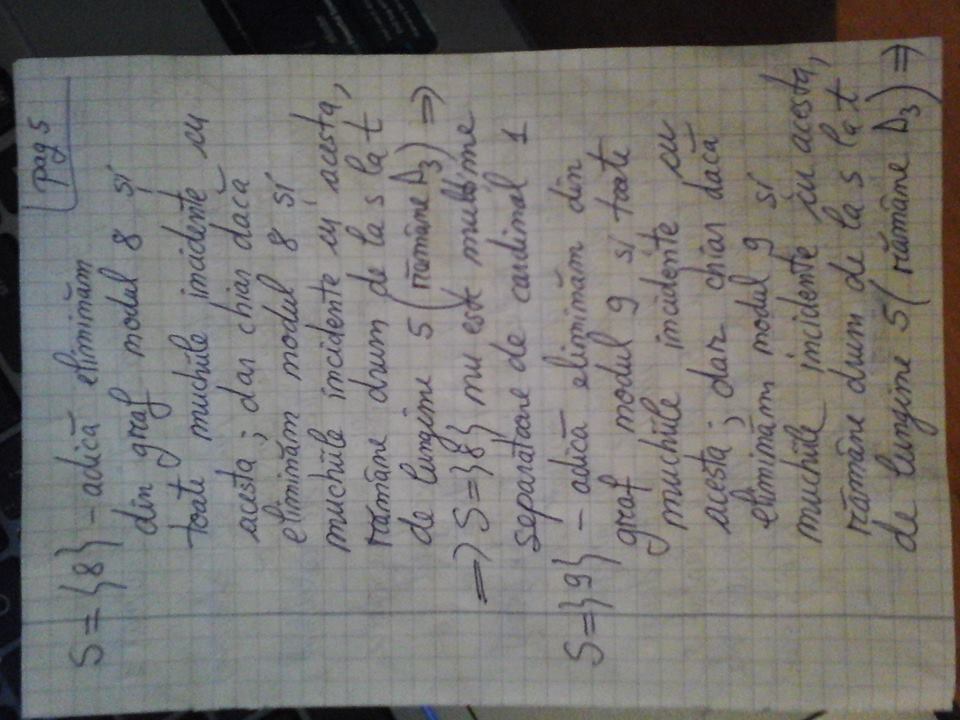 pag 5
S = {8} - adică eliminăm
din graf nodul 8 și
toate muchiile incidente cu
acesta ; dar chiar dacă
eliminăm nodul 8 și
muchiile incidente cu acesta,
rămâne drum de la s la t
de lungime 5 (rămâne D₃) ⇒
⇒ S = {8} nu este mulțime
separatoare de cardinal 1
S = {9} - adică eliminăm din
graf nodul 9 și toate
muchiile incidente cu
acesta ; dar chiar dacă
eliminăm nodul 9 și
muchiile incidente cu acesta,
rămâne drum de la s la t
de lungime 5 (rămâne D₃) ⇒